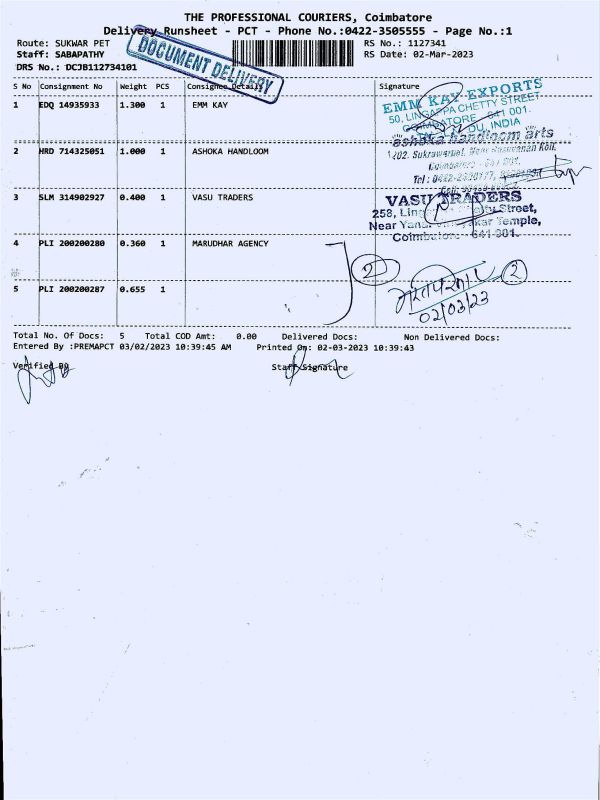 THE PROFESSIONAL COURIERS, Coimbatore
Delivery Runsheet - PCT - Phone No.:0422-3505555 - Page No.:1
Route: SUKWAR PET
RS No.: 1127341
Staff: SABAPATHY
RS Date: 02-Mar-2023
DRS No.: DCJB112734101
DOCUMENT DELIVERY
S No Consignment No Weight PCS Consignee Details Signature
1 EDQ 14935933 1.300 1 EMM KAY
EMM KAY EXPORTS
50, LINGAPPA CHETTY STREET
COIMBATORE 641 001.
INDIA
2 HRD 714325051 1.000 1 ASHOKA HANDLOOM
ashoka handloom arts
3 SLM 314902927 0.400 1 VASU TRADERS
VASU TRADERS
258, Street,
Near Temple,
Coimbatore 641 001.
4 PLI 200200280 0.360 1 MARUDHAR AGENCY
2
2
02/03/23
5 PLI 200200287 0.655 1
Total No. Of Docs: 5 Total COD Amt: 0.00 Delivered Docs: Non Delivered Docs:
Entered By :PREMAPCT 03/02/2023 10:39:45 AM Printed On: 02-03-2023 10:39:43
Verified By
Staff Signature